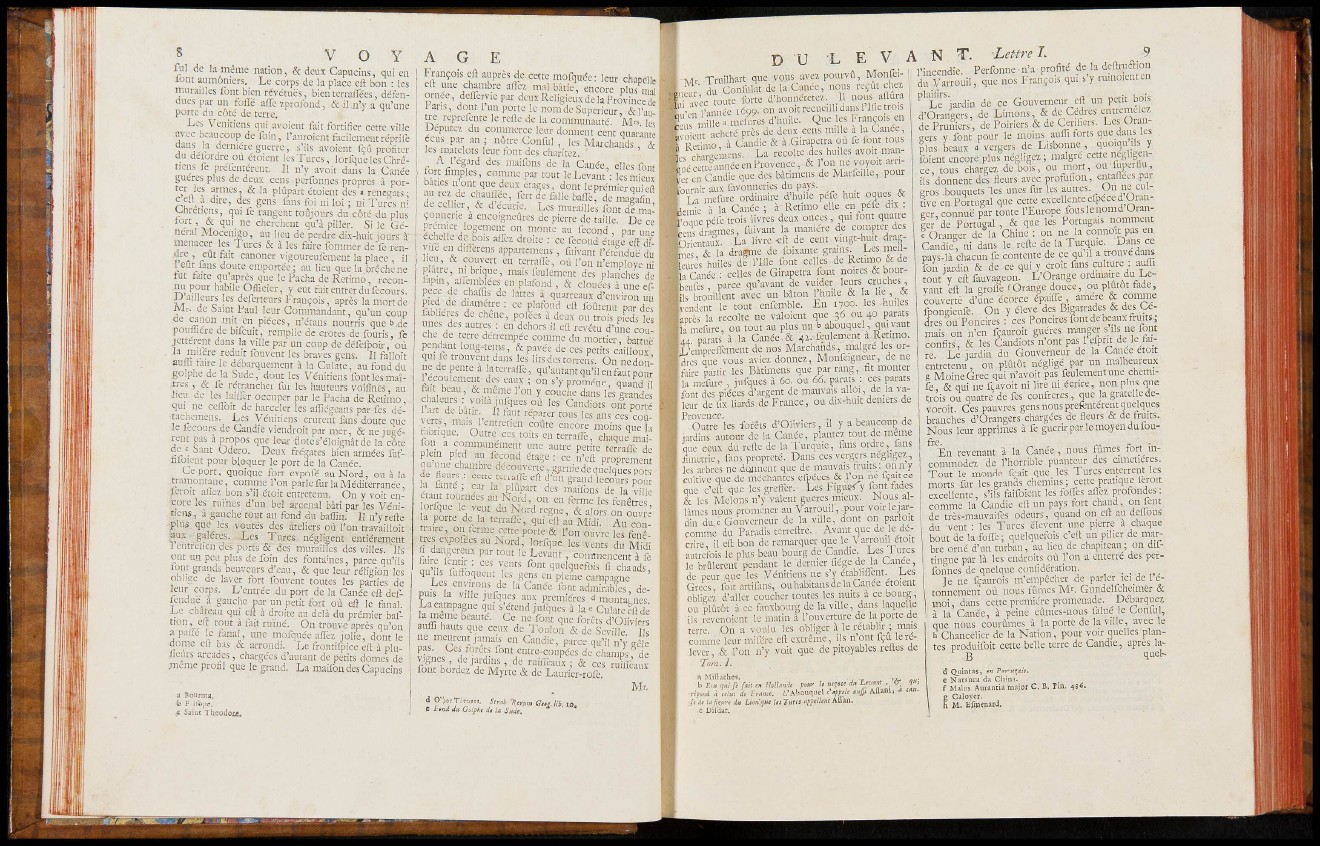 8 VOYAGE
ful de la même nation, & deux Capucins, qui en
sont aumôniers. Le corps de la place est bon : les
murailles sont bien révétuës, bien terrassées, défen-
dues par un fossé assez profond, & il n'y a qu'une
porte du côté de terre.
Les Venitiens qui avoient fait fortifier cette ville
avec beaucoup de soin, l'auroient facilement réprise
dans la derniére guerre, s'ils avoient sçû profiter
du désordre où étoient les Turcs, lorsque les Chré-
tiens se présentérent. Il n'y avoit dans la Canée
guéres plus de deux cens personnes propres à por-
ter les armes, & la plûpart étoient des a renegats;
c'est à dire, des gens sans foi ni loi; ni Turcs ni
Chrétiens, qui se rangent toûjours du côté du plus
fort, & qui ne cherchent qu'à piller. Si le Gé-
néral Mocenigo, au lieu de perdre dix-huit jours à
menacer les Turcs & à les faire sommer de se ren-
dre, eût fait canoner vigoureusement la place, il
l'eût sans doute emportée; au lieu que la brêche ne
fut faite qu'après que le Pacha de Retimo, recon-
nu pour habile Officier, y eut fait entrer du secours.
D'ailleurs les deserteurs François, après la mort de
Mr. de Saint Paul leur Commandant, qu'un coup
de canon mit en piéces, n'étans nourris que b de
poussiére de biscuit, remplie de crotes de souris, se
jettérent dans la ville par un coup de désespoir, où
la misére reduit souvent les braves gens. Il falloit
aussi faire le débarquement à la Culate, au fond du
golphe de la Sude, dont les Vénitiens sont les maî-
tres, & se rétrancher sur les hauteurs voisines, au
lieu de les laisser occuper par le Pacha de Retimo,
qui ne cessoit de harceler les assiégeans par ses dé-
tachemens. Les Vénitiens crurent sans doute que
le secours de Candie viendroit par mer, & ne jugé-
rent pas à propos que leur flote s'éloignât de la côte
de c Sant Odero. Deux frégates bien armées suf-
fisoient pour bloquer le port de la Canée.
Ce port, quoique fort exposé au Nord, ou à la
tramontane, comme l'on parle sur la Méditerranée,
seroit assez bon s'il étoit entretenu. On y voit en-
core les ruïnes d'un bel arcenal bâti par les Véni-
tiens, à gauche tout au fond du bassin. Il n'y reste
plus que les voûtes des ateliers où l'on travailloit
aux galéres. Les Turcs négligent entiérement
l'entretien des ports & des murailles des villes. Ils
ont un peu plus de soin des fontaines, parce qu'ils
sont grands beuveurs d'eau, & que leur réligion les
oblige de laver fort souvent toutes les parties de
leur corps. L'entrée du port de la Canée est def-
fenduë à gauche par un petit fort où est le fanal.
Le château qui est à droite au delà du prémier bas-
tion, est tout à fait ruiné. On trouve après qu'on
a passé le fanal, une mosquée assez jolie, dont le
dome est bas & arrondi. Le frontispice est à plu-
sieurs arcades, chargées d'autant de petits domes de
même profil que le grand. La maison des Capucins
a Bourma.
c Saint Theodore.
François est auprès de cette mosquée: leur chapelle
est une chambre assez mal bâtie, encore plus mal
ornée, desservie par deux Religieux de la Province de
Paris, dont l'un porte le nom de Superieur, & l'au-
tre represente le reste de la communauté. Mrs. les
Députez du commerce leur donnent cent quarante
écus par an; nôtre Consul, les Marchands, &
les matelots leur font des charitez.
A l'égard des maisons de la Canée, elles sont
fort simples, comme par tout le Levant : les mieux
bâties n'ont que deux étages, dont le prémier qui est
au rez de chaussée, sert de salle basse, de magasin,
de cellier, & d'écurie. Les murailles sont de ma-
çonnerie à encoigneûres de pierre de taille. De ce
prémier logement on monte au second, par une
échelle de bois assez droite : ce second étage est di-
visé en différens appartemens, suivant l'étenduë du
lieu, & couvert en terrasse, où l'on n'employe ni
plâtre, ni brique, mais seulement des planches de
sapin, assemblées en plafond, & clouées à une es-
pece de chassis de lattes à quarreaux d'environ un
pied de diamétre : ce plafond est soûtenu par des
sabliéres de chêne, posées à deux ou trois pieds les
unes des autres : en dehors il est revétu d'une cou-
che de terre détrempée comme du mortier, battuë
pendant long-tems, & pavée de ces petits cailloux,
qui se trouvent dans les lits des torrens. On ne don-
ne de pente à la terrasse, qu'autant qu'il en faut pour
l'écoulement des eaux ; on s'y proméne, quand il
fait beau, & même l'on y couche dans les grandes
chaleurs : voilà jusques où les Candiots ont porté
l'art de bâtir. Il faut réparer tous les ans ces cou-
verts, mais l'entretien coûte encore moins que la
fabrique. Outre ces toits en terrasse, chaque mai-
son a communément une autre petite terrasse de
plein pied au second étage : ce n'est proprement
qu'une chambre découverte, garnie de quelques pots
de fleurs : cette terrasse est d'un grand secours pour
la santé ; car la plûpart des maisons de la ville
étant tournées au Nord, on en ferme les fenêtres,
lorsque le vent du Nord regne, & alors on ouvre
la porte de la terrasse, qui est au Midi. Au con-
traire, on ferme cette porte & l'on ouvre les fenê-
tres exposées au Nord, lorsque les vents du Midi
si dangereux par tout le Levant, commencent à se
faire sentir : ces vents sont quelquefois si chauds,
qu'ils suffoquent les gens en pleine campagne
Les environs de la Canée sont admirables, de-
puis la ville jusques aux premiéres d montagnes.
La campagne qui s'étend jusques à la e Culate est de
la même beauté. Ce ne sont que forêts d'Oliviers
aussi hauts que ceux de Toulon & de Seville. Ils
ne meurent jamais en Candie, parce qu'il n'y géle
pas. Ces forêts sont entre-coupées de champs, de
vignes, de jardins, de ruisseaux ; & ces ruisseaux
sont bordez de Myrte & de Laurier-rose.
Mr.
e Fond du Golphe de la Sude.
DU LEVANT. Lettre I. 9
Mr. Truilhart que vous avez pourvû, Monsei-
gneur, du Consulat de la Canée, nous reçût chez
lui avec toute sorte d'honnêtetez. Il nous assûra
qu'en l'année 1699. on avoit recueilli dans l'Isle trois
cens mille a mesures d'huile. Que les François en
avoient acheté près de deux cens mille à la Canée,
à Retimo, à Candie & à Girapetra où se font tous
les chargemens. La recolte des huiles avoit man-
qué cette année en Provence, & l'on ne voyoit arri-
ver en Candie que des bâtimens de Marseille, pour
fournir aux savonneries du pays.
La mesure ordinaire d'huile pése huit oques &
demie à la Canée ; à Retimo elle en pése dix :
l'oque pése trois livres deux onces, qui font quatre
cens dragmes, suivant la maniére de compter des
Orientaux. La livre est de cent vingt-huit drag-
mes, & la dragme de soixante grains. Les meil-
leures huiles de l'Isle sont celles de Retimo & de
la Canée : celles de Girapetra sont noires & bour-
beuses, parce qu'avant de vuider leurs cruches,
ils brouillent avec un bâton l'huile & la lie, &
vendent le tout ensemble. En 1700. les huiles
après la recolte ne valoient que 36 ou 40 parats
la mesure, ou tout au plus un b abouquel, qui vaut
44. parats à la Canée & 42. seulement à Retimo.
L'empressement de nos Marchands, malgré les or-
dres que vous aviez donnez, Monseigneur, de ne
faire partir les Bâtimens que par rang, fit monter
la mesure, jusques à 60. ou 66. parats : ces parats
sont des piéces d'argent de mauvais alloi, de la va-
leur de six liards de France, ou dix-huit deniers de
Provence.
Outre les forêts d'Oliviers, il y a beaucoup de
jardins autour de la Canée, plantez tout de même
que ceux du reste de la Turquie, sans ordre, sans
simetrie, sans propreté. Dans ces vergers négligez,
les arbres ne donnent que de mauvais fruits : on n'y
cultive que de méchantes espéces & l'on ne sçait ce
que c'est que les greffer. Les Figues y sont fades
& les Melons n'y valent guéres mieux. Nous al-
lâmes nous promener au Varrouil, pour voir le jar-
din du c Gouverneur de la ville, dont on parloit
comme du Paradis terrestre. Avant que de le dé-
crire, il est bon de remarquer que le Varrouil étoit
autrefois le plus beau bourg de Candie. Les Turcs
le brûlerent pendant le dernier siége de la Canée,
de peur que les Vénitiens ne s'y établissent. Les
Grecs, soit artisans, ou habitans de la Canée étoient
obligez d'aller coucher toutes les nuits à ce bourg,
ou plûtôt à ce fauxbourg de la ville, dans laquelle
ils revenoient le matin à l'ouverture de la porte de
terre. On a voulu les obliger à le rétablir ; mais
comme leur misére est extrême, ils n'ont sçû le ré-
lever, & l'on n'y voit que de pitoyables restes de
Tom. I.
a Mistaches.
b Ecu qui se fait en Hollande pour le negoce du Levant, & qui
répond à celui de France. L'Abouquel s'appele aussi Assani, à cau-
se de la figure du Lion, que les Turcs appellent Assan.
c Disdar.
l'incendie. Personne n'a profité de la destruction
du Varrouil, que nos François qui s'y ruinoient en
plaisirs.
Le jardin de ce Gouverneur est un petit bois
d'Orangers, de Limons, & de Cédres entremêlez
de Pruniers, de Poiriers & de Cerisiers. Les Oran-
gers y sont pour le moins aussi forts que dans les
plus beaux d vergers de Lisbonne, quoiqu'ils y
soient encore plus négligez; malgré cette négligen-
ce, tous chargez de bois, ou mort, ou superflu,
ils donnent des fleurs avec profusion, entassées par
gros bouquets les unes sur les autres. On ne cul-
tive en Portugal que cette excellente espéce d'Oran-
ger, connuë par toute l'Europe sous le nom d'Oran-
ger de Portugal, & que les Portugais nomment
e Oranger de la Chine : on ne la connoît pas en
Candie, ni dans le reste de la Turquie. Dans ce
pays-là chacun se contente de ce qu'il a trouvé dans
son jardin & de ce qui y croit sans culture : aussi
tout y est sauvageon. L'Orange ordinaire du Le-
vant est la grosse f Orange douce, ou plûtôt fade,
couverte d'une écorce épaisse, amére & comme
spongieuse. On y éleve des Bigarrades & des Cé-
dres ou Poncires : ces Poncires sont de beaux fruits;
mais on n'en sçauroit guéres manger s'ils ne sont
confits, & les Candiots n'ont pas l'esprit de le fai-
re. Le jardin du Gouverneur de la Canée étoit
entretenu, ou plûtôt négligé par un malheureux
g Moine Grec qui n'avoit pas seulement une chemi-
se, & qui ne sçavoit ni lire ni écrire, non plus que
trois ou quatre de ses confreres, que la gratelle dé-
voroit. Ces pauvres gens nous présentérent quelques
branches d'Orangers chargées de fleurs & de fruits.
Nous leur apprîmes à se guerir par le moyen du sou-
fre.
En revenant à la Canée, nous fûmes fort in-
commodez de l'horrible puanteur des cimetiéres.
Tout le monde sçait que les Turcs enterrent les
morts sur les grands chemins ; cette pratique seroit
excellente, s'ils faisoient les fosses assez profondes :
comme la Candie est un pays fort chaud, on sent
de très-mauvaises odeurs, quand on est au dessous
du vent : les Turcs élevent une pierre à chaque
bout de la fosse; quelquefois c'est un pilier de mar-
bre orné d'un turban, au lieu de chapiteau; on dis-
tingue par là les endroits où l'on a enterré des per-
sonnes de quelque consideration.
Je ne sçaurois m'empêcher de parler ici de l'é-
tonnement où nous fûmes Mr. Gundelscheimer &
moi, dans cette premiére promenade. Débarquez
à la Canée, à peine eûmes-nous salué le Consul,
que nous courûmes à la porte de la ville, avec le
h Chancelier de la Nation, pour voir quelles plan-
tes produisoit cette belle terre de Candie, après la-
B quel-
d Quintas, en Portugais.
e Naranja da China.
f Malus Aurantia major C. B. Pin. 436.
g Caloyer.
h M. Esmenard.